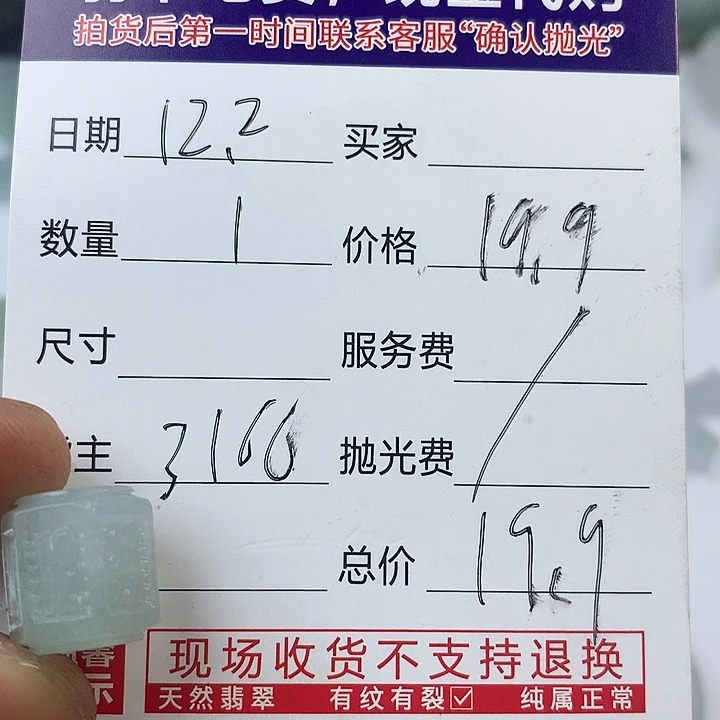 拍货后第一时间联系客服“确认抛光”
日期 12.2 买家
数量 1 价格 19.9
尺寸 服务费 /
主 3166 抛光费
总价 19.9
现场收货不支持退换
示 天然翡翠 有纹有裂☑ 纯属正常